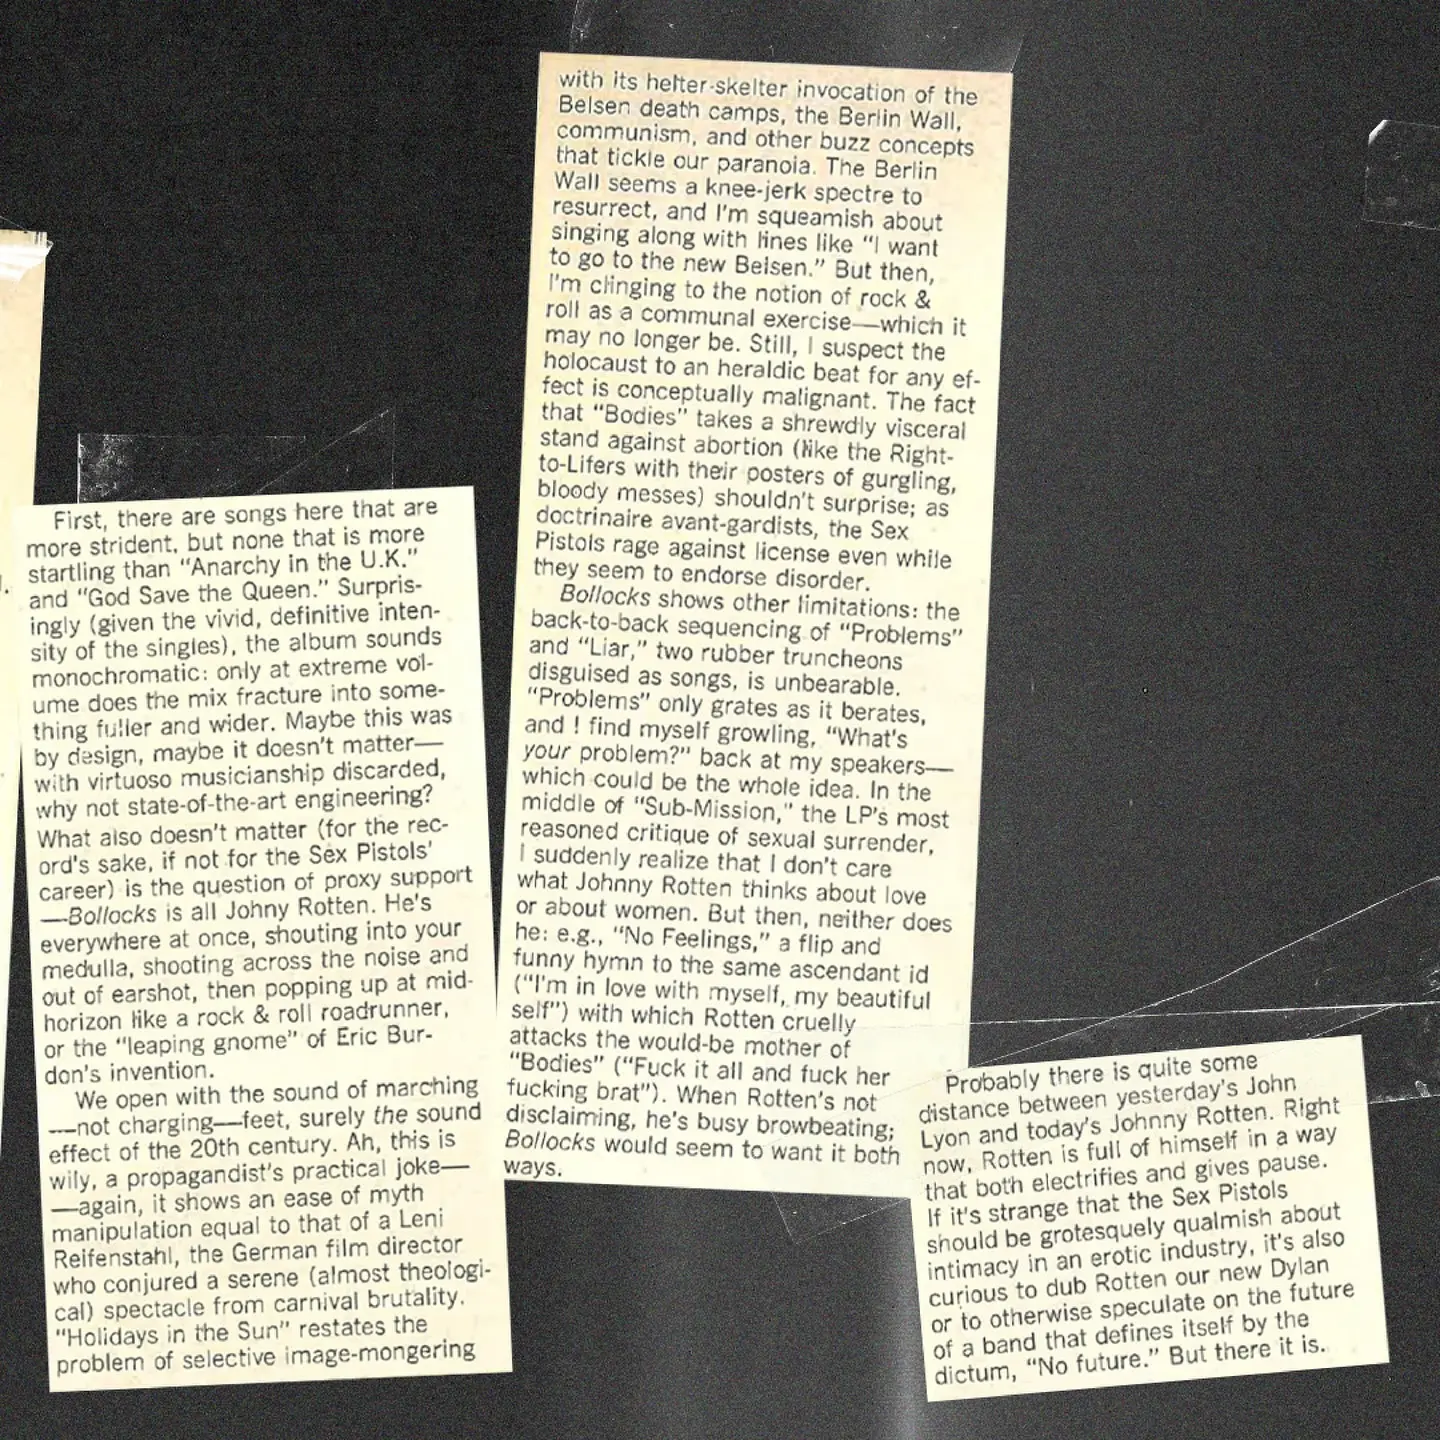 First, there are songs here that are
more strident, but none that is more
startling than “Anarchy in the U.K.”
and “God Save the Queen.” Surpris-
ingly (given the vivid, definitive inten-
sity of the singles), the album sounds
monochromatic: only at extreme vol-
ume does the mix fracture into some-
thing fuller and wider. Maybe this was
by design, maybe it doesn't matter—
with virtuoso musicianship discarded,
why not state-of-the-art engineering?
What also doesn't matter (for the rec-
ord's sake, if not for the Sex Pistols'
career) is the question of proxy support
—Bollocks is all Johny Rotten. He's
everywhere at once, shouting into your
medulla, shooting across the noise and
out of earshot, then popping up at mid-
horizon like a rock & roll roadrunner,
or the “leaping gnome” of Eric Bur-
don's invention.
We open with the sound of marching
—not charging—feet, surely the sound
effect of the 20th century. Ah, this is
wily, a propagandist's practical joke—
—again, it shows an ease of myth
manipulation equal to that of a Leni
Reifenstahl, the German film director
who conjured a serene (almost theologi-
cal) spectacle from carnival brutality.
“Holidays in the Sun” restates the
problem of selective image-mongering
with its helter-skelter invocation of the
Belsen death camps, the Berlin Wall,
communism, and other buzz concepts
that tickle our paranoia. The Berlin
Wall seems a knee-jerk spectre to
resurrect, and I'm squeamish about
singing along with lines like “I want
to go to the new Belsen.” But then,
I'm clinging to the notion of rock &
roll as a communal exercise—which it
may no longer be. Still, I suspect the
holocaust to an heraldic beat for any ef-
fect is conceptually malignant. The fact
that “Bodies” takes a shrewdly visceral
stand against abortion (like the Right-
to-Lifers with their posters of gurgling,
bloody messes) shouldn't surprise; as
doctrinaire avant-gardists, the Sex
Pistols rage against license even while
they seem to endorse disorder.
Bollocks shows other limitations: the
back-to-back sequencing of “Problems”
and “Liar,” two rubber truncheons
disguised as songs, is unbearable.
“Problems” only grates as it berates,
and I find myself growling, “What's
your problem?” back at my speakers—
which could be the whole idea. In the
middle of “Sub-Mission,” the LP's most
reasoned critique of sexual surrender,
I suddenly realize that I don't care
what Johnny Rotten thinks about love
or about women. But then, neither does
he: e.g., “No Feelings,” a flip and
funny hymn to the same ascendant id
(“I'm in love with myself, my beautiful
self”) with which Rotten cruelly
attacks the would-be mother of
“Bodies” (“Fuck it all and fuck her
fucking brat”). When Rotten's not
disclaiming, he's busy browbeating;
Bollocks would seem to want it both
ways.
Probably there is quite some
distance between yesterday's John
Lyon and today's Johnny Rotten. Right
now, Rotten is full of himself in a way
that both electrifies and gives pause.
If it's strange that the Sex Pistols
should be grotesquely qualmish about
intimacy in an erotic industry, it's also
curious to dub Rotten our new Dylan
or to otherwise speculate on the future
of a band that defines itself by the
dictum, “No future.” But there it is.